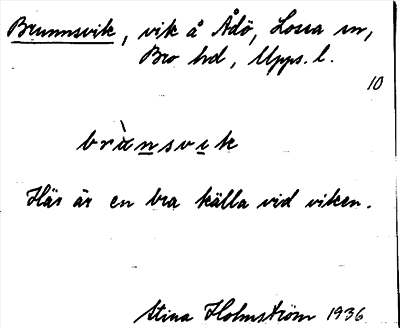 Brunnsvik, vik å Ådö, Lossa sn,
Bro hd, Upps. l.
10
brùnsvik
Här är en bra källa vid viken.
Stina Holmström 1936